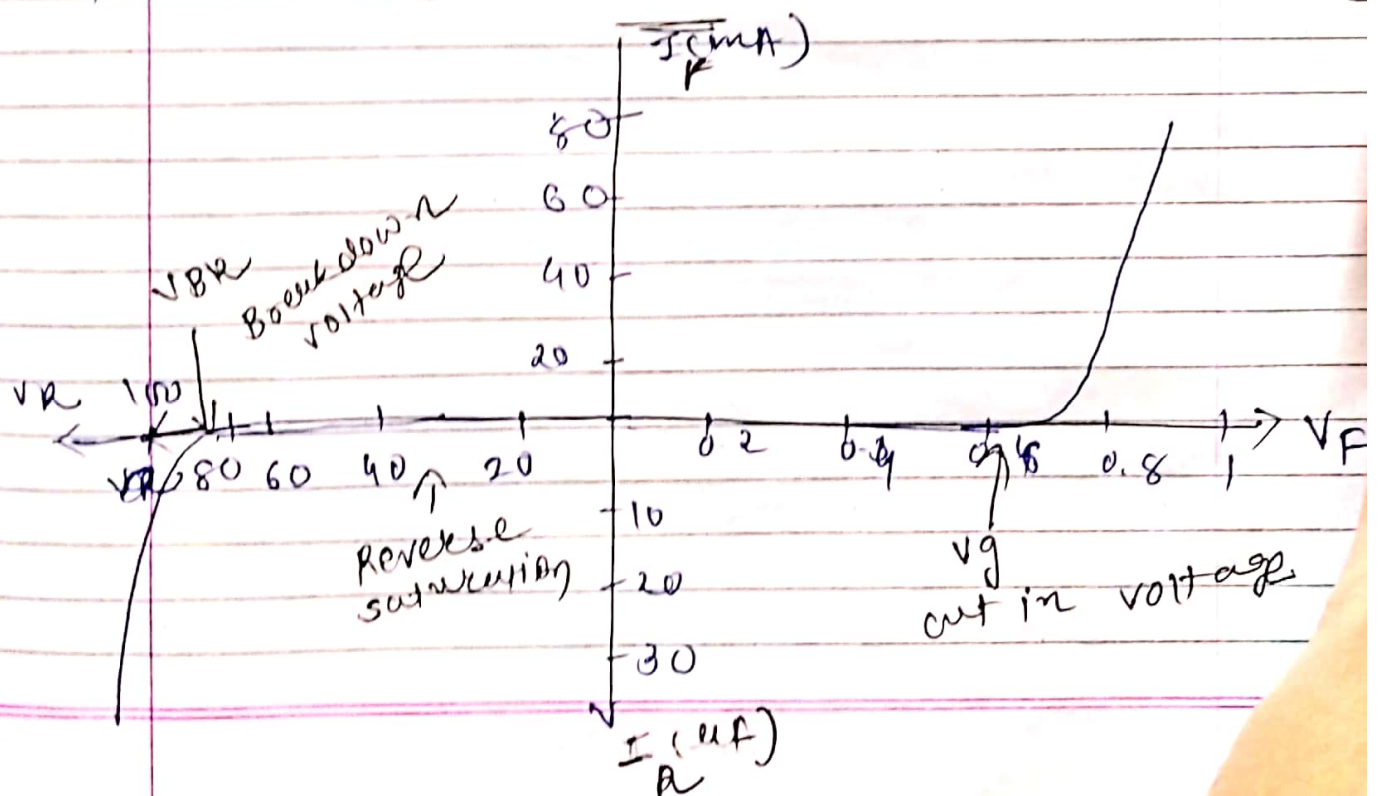 I F (mA)
80
60
40
20
VBR
Breakdown
voltage
VR 100
80 60 40 20
0.2 0.4 0.6 0.8 1 VF
Reverse
saturation
10
20
30
Vg
cut in voltage
I R (uA)